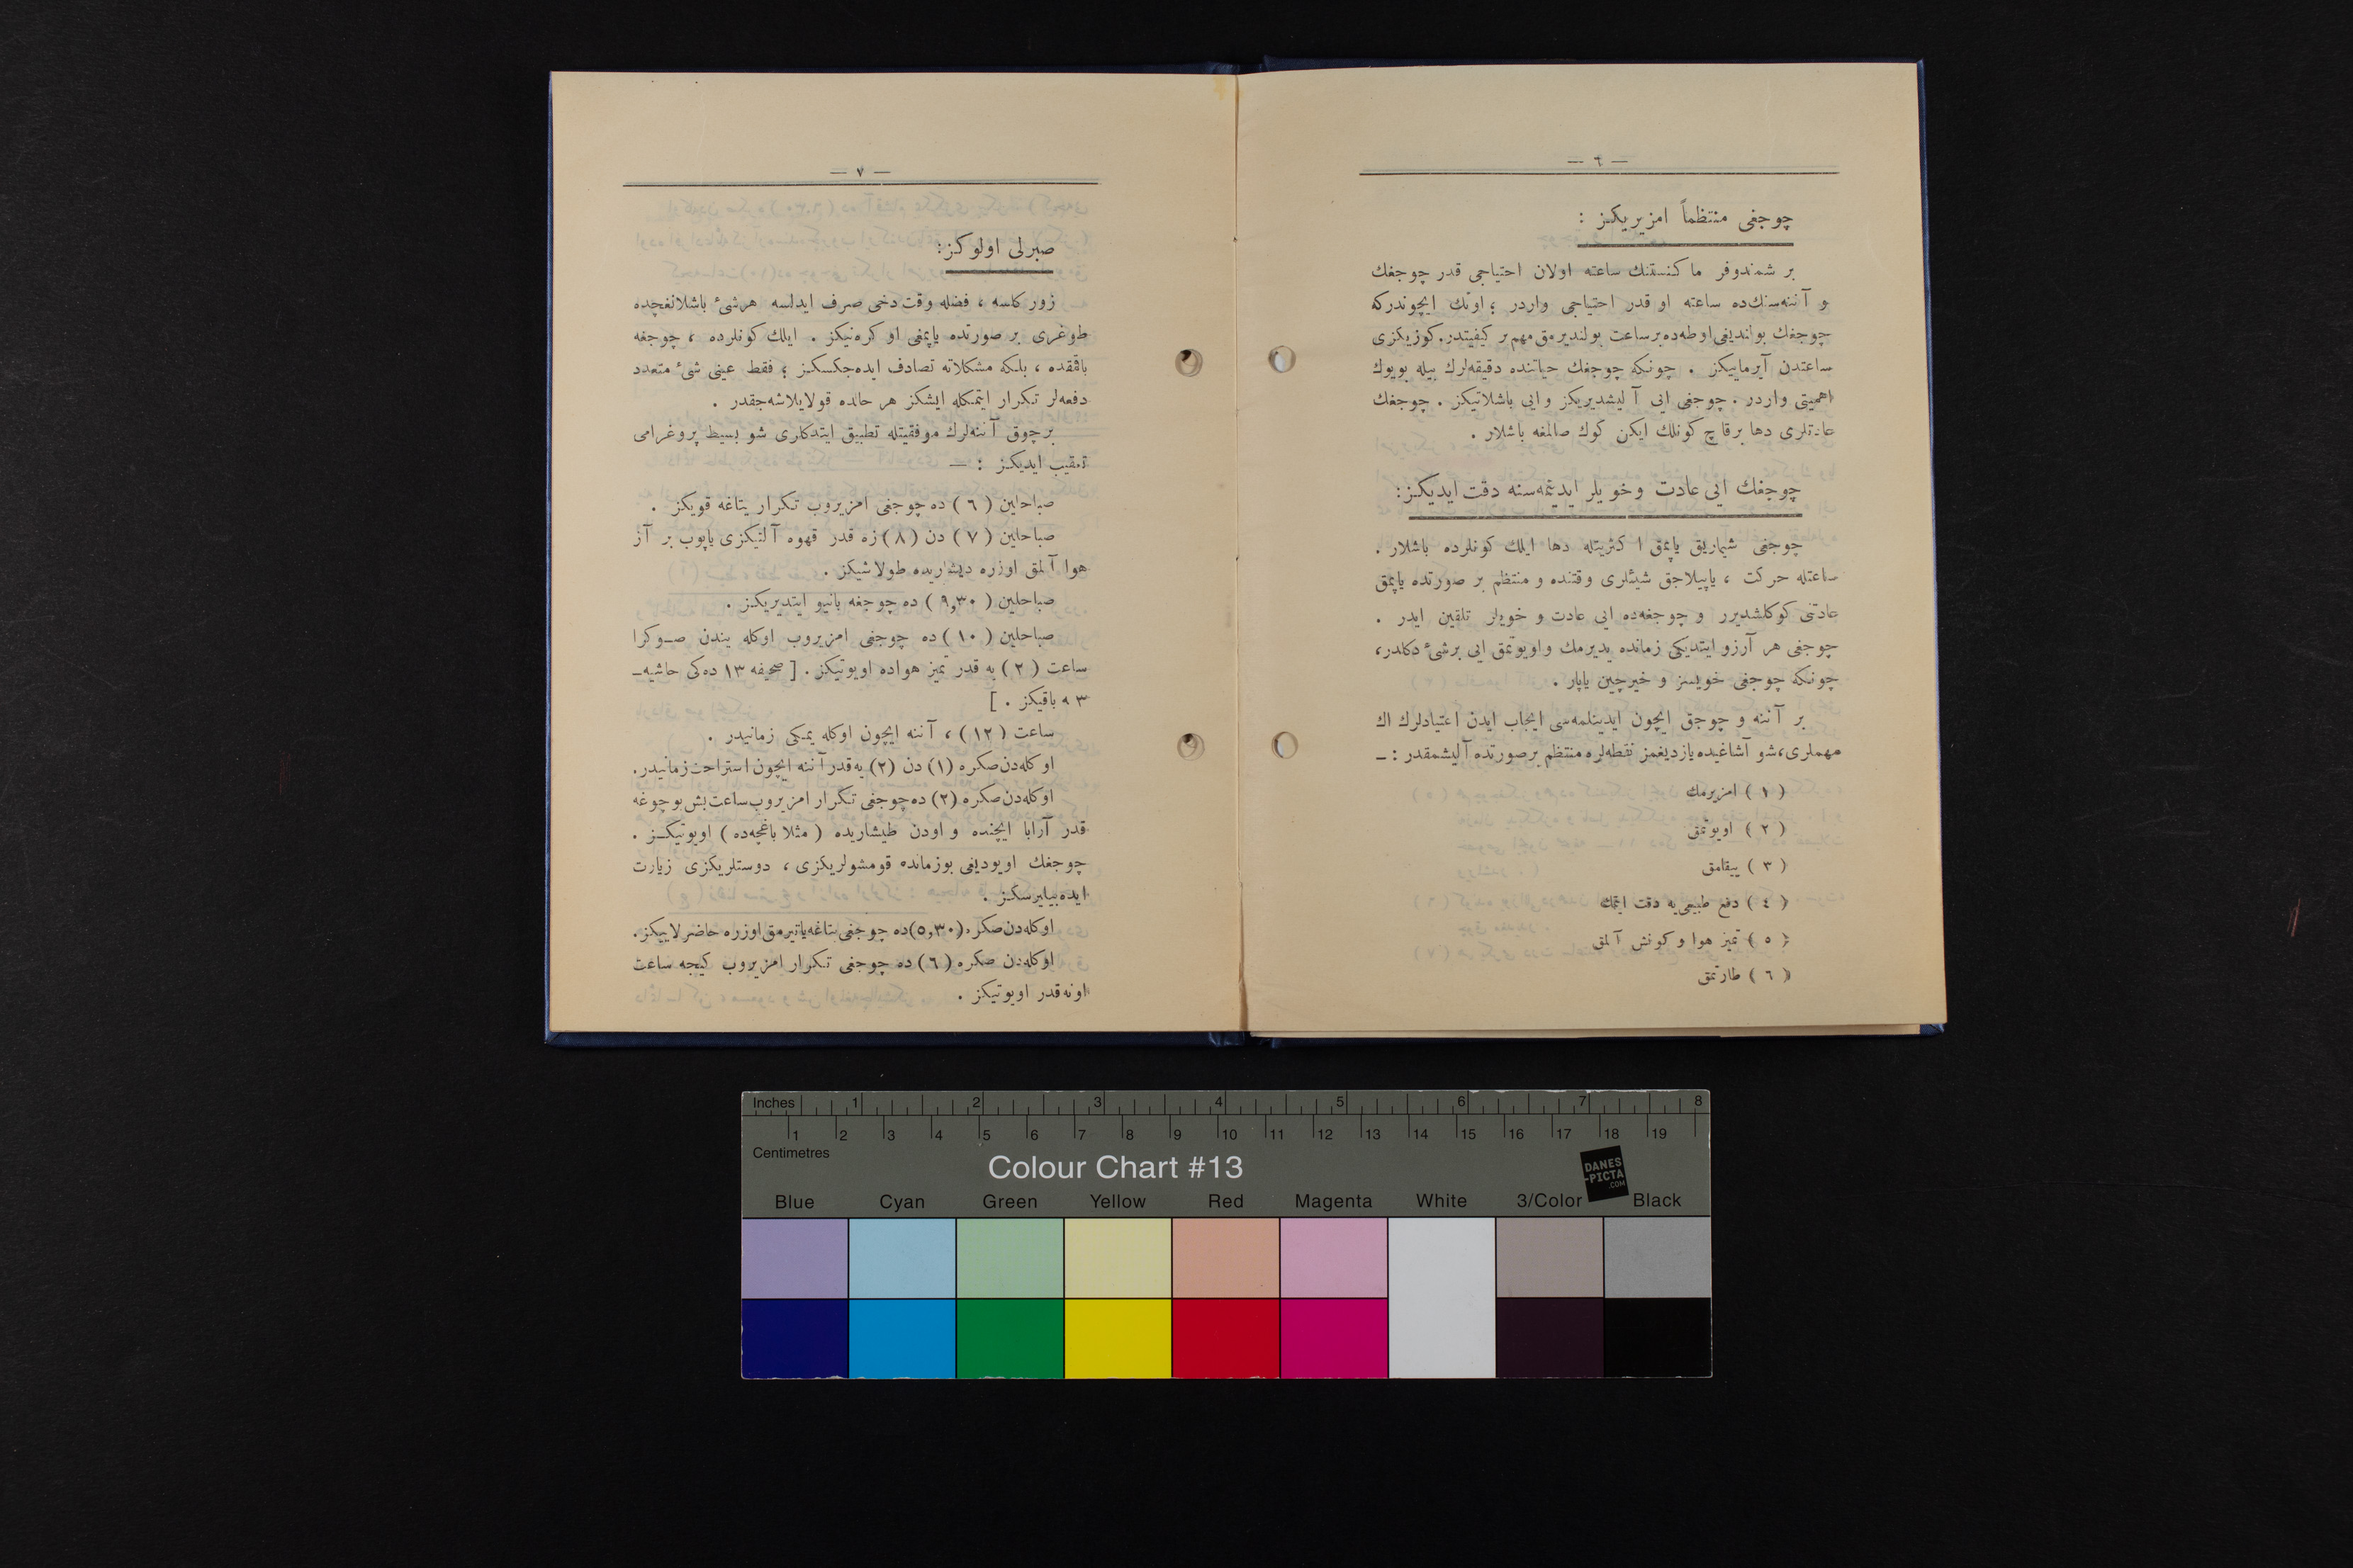 — ٦ —
چوجغی منتظماً امزیریکز :
بر شمندوفر ماکنستنك ساعته اولان احتیاجی قدر چوجغك
و آننه‌سنك‌ده ساعته او قدر احتیاجی واردر ؛ اونك ایچوندرکه
چوجغك بولندیغی اوطه‌ده برساعت بولندیرمق مهم بر کیفیتدر. کوزیکزی
ساعتدن آیرماییکز . چونکه چوجغك حیاتنده دقیقه‌لرك بیله بویوك
اهمیتی واردر . چوجغی ایی آلیشدیریکز و ایی باشلاتیکز . چوجغك
عادتلری دها برقاچ کونلك ایکن کوك صالمغه باشلار .
چوجغك ایی عادت و خویلر ایدنمه‌سنه دقت ایدیکز:
چوجغی شیماریق یاپمق اکثریتله دها ایلك کونلرده باشلار .
ساعتله حرکت ، یاپیلاجق شیئلری وقتنده و منتظم بر صورتده یاپمق
عادتنی کوکلشدیرر و چوجغه‌ده ایی عادت و خویلر تلقین ایدر .
چوجغی هر آرزو ایتدیکی زمانده یدیرمك و اویوتمق ایی برشیٔ دکلدر،
چونکه چوجغی خویسز و خیرچین یاپار .
بر آننه و چوجق ایچون ایدینلمه‌سی ایجاب ایدن اعتیادلرك اك
مهملری، شو آشاغیده یازدیغمز نقطه‌لره منتظم برصورتده آلیشمقدر : ـ
( ١ ) امزیرمك
( ٢ ) اویوتمق
( ٣ ) ییقامق
( ٤ ) دفع طبیعی‌یه دقت ایتمك
( ٥ ) تمیز هوا و کونش آلمق
( ٦ ) طارتمق
— ٧ —
صبرلی اولوکز:
زور کلسه ، فضله وقت دخی صرف ایدلسه هرشیٔ باشلانغیچده
طوغری بر صورتده یاپمغی اوکره‌نیکز . ایلك کونلرده ، چوجغه
باقمقده ، بلکه مشکلاته تصادف ایده‌جکسکز ؛ فقط عینی شیٔ متعدد
دفعه‌لر تکرار ایتمکله ایشکز هر حالده قولایلاشه‌جقدر .
برچوق آننه‌لرك موفقیتله تطبیق ایتدکلری شو بسیط پروغرامی
تعقیب ایدیکز : —
صباحلین ( ٦ ) ده چوجغی امزیروب تکرار یتاغه قویکز .
صباحلین ( ٧ ) دن ( ٨ ) زه قدر قهوه آلتیکزی یاپوب بر آز
هوا آلمق اوزره دیشاریده طولاشیکز .
صباحلین ( ٩,٣٠ ) ده چوجغه بانیو ایتدیریکز .
صباحلین ( ١٠ ) ده چوجغی امزیروب اوکله یندن صـوکرا
ساعت ( ٢ ) یه قدر تمیز هواده اویوتیکز . [ صحیفه ١٣ ده‌کی حاشیه‌ـ
٣ ه باقیکز . ]
ساعت ( ١٢ ) ، آننه ایچون اوکله یمکی زمانیدر .
اوکله‌دن‌صکره (١) دن (٢) یه‌قدر آننه ایچون استراحت زمانیدر.
اوکله‌دن‌صکره (٢) ده‌چوجغی تکرار امزیروب‌ساعت‌بش‌بوچوغه
قدر آرابا ایچنده و اودن طیشاریده ( مثلا باغچه‌ده ) اویوتیکـز .
چوجغك اویودیغی بوزمانده قومشولریکزی ، دوستلریکزی زیارت
ایده‌بیلیرسکز .
اوکله‌دن‌صکره (٥,٣٠) ده چوجغی یتاغه‌یاتیرمق اوزره حاضرلاییکز.
اوکله‌دن صکره ( ٦ ) ده چوجغی تکرار امزیروب کیجه ساعت
اونه قدر اویوتیکز .
Inches 1 2 3 4 5 6 7 8
1 2 3 4 5 6 7 8 9 10 11 12 13 14 15 16 17 18 19
Centimetres
Colour Chart #13
DANES
-PICTA
.COM
Blue Cyan Green Yellow Red Magenta White 3/Color Black